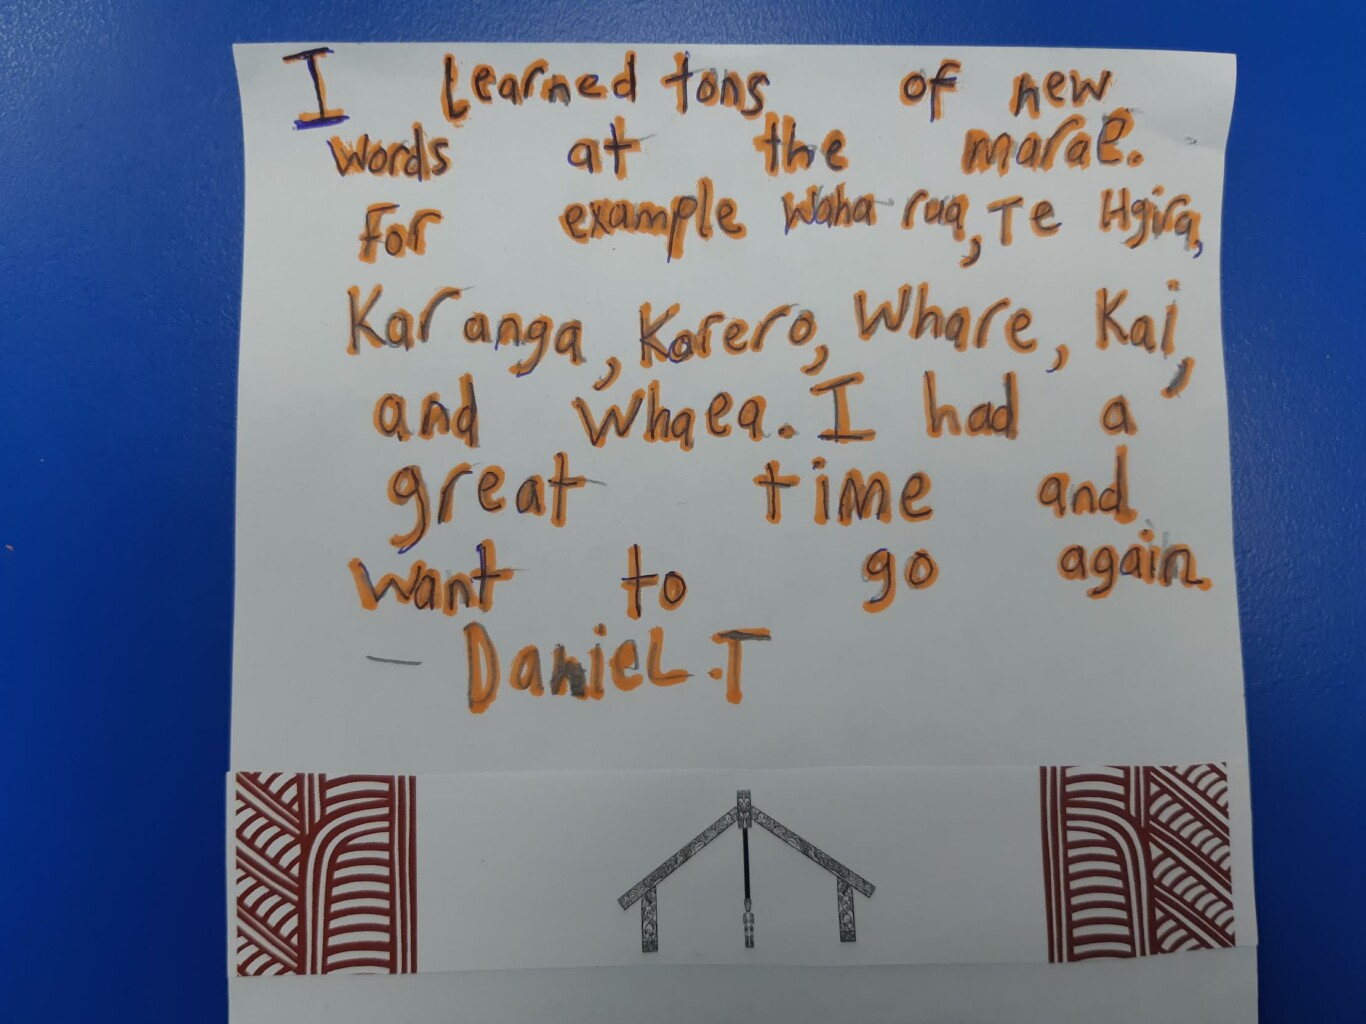 I Learned tons of new
words at the marae.
For example Waha rua, Te Hgira,
Karanga, Korero, Whare, Kai,
and Whaea. I had a
great time and
want to go again
– DanieL.T